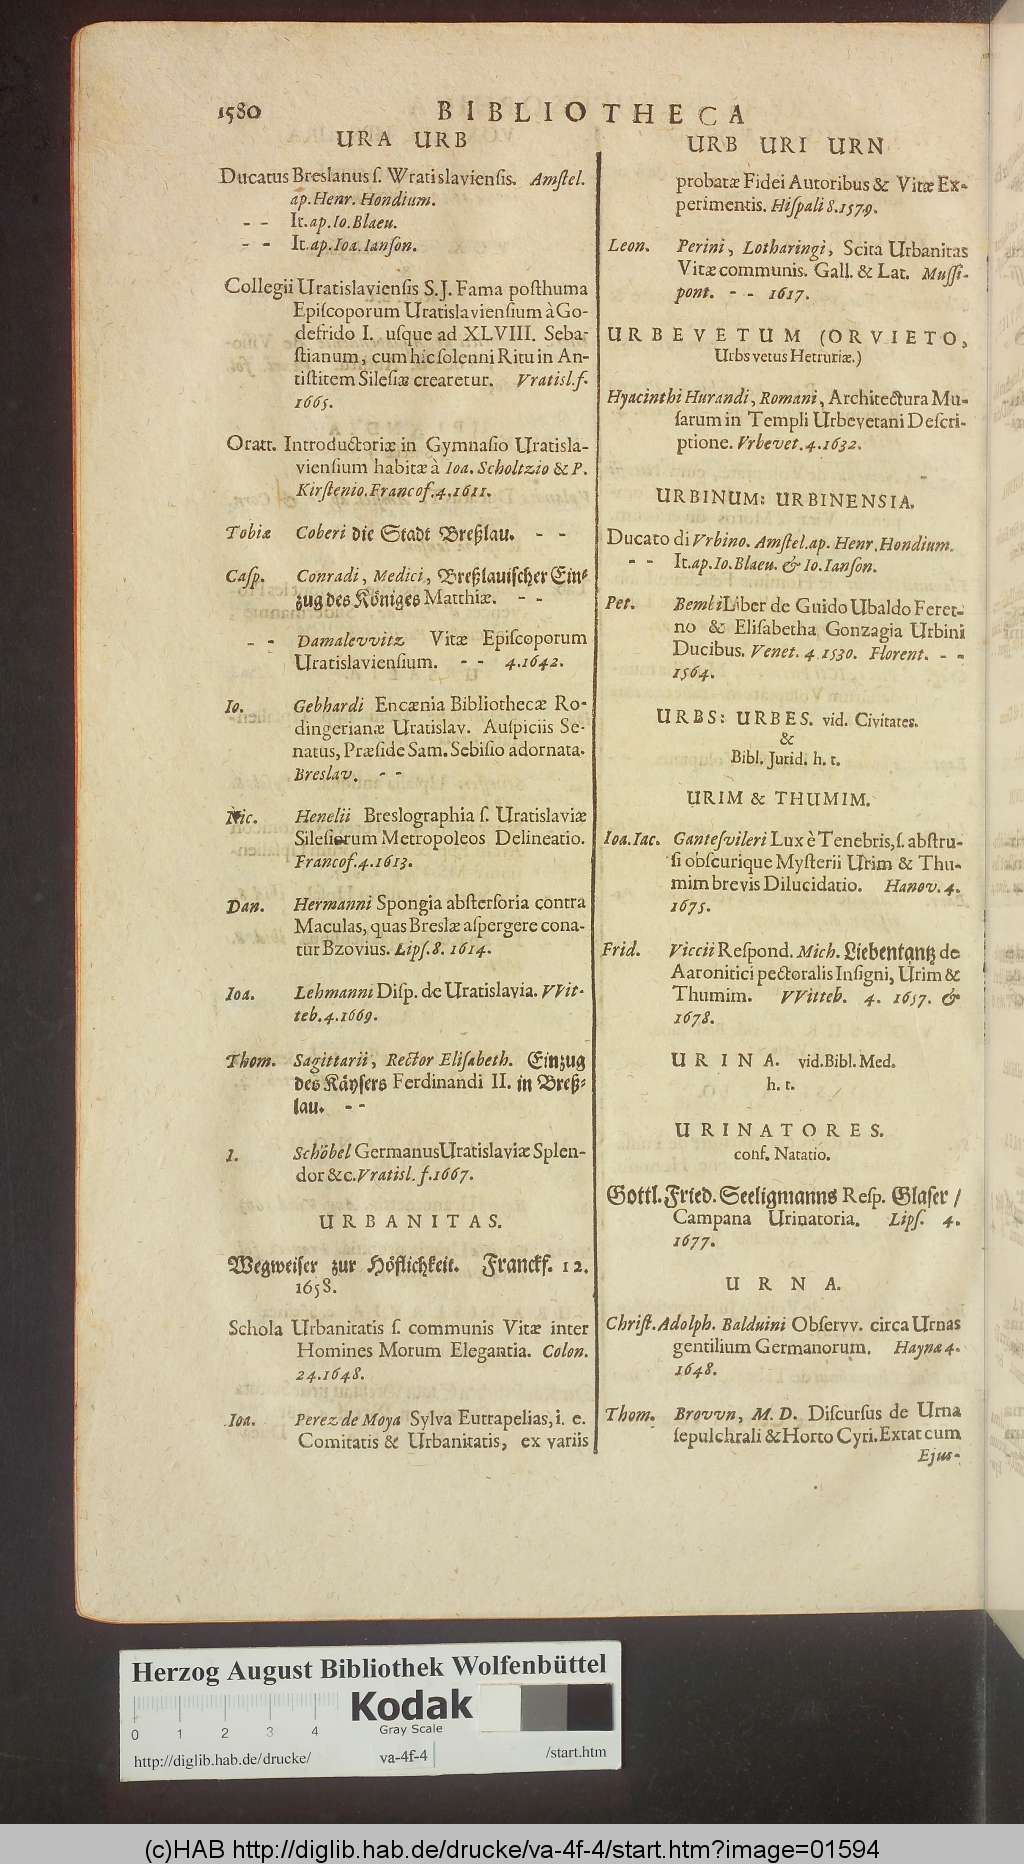 1580 BIBLIOTHECA
URA URB
Ducatus Breslanus ſ. Wratislaviensis. Amſtel.
ap. Henr. Hondium.
- - It. ap. Io. Blaeu.
- - It. ap. Ioa. Ianſon.
Collegii Uratislaviensis S.J. Fama poſthuma
Epiſcoporum Uratislaviensium à Go-
defrido I. uſque ad XLVIII. Seba-
ſtianum, cum hic ſolenni Ritu in An-
tiſtitem Sileſiæ crearetur. Vratisl. f.
1665.
Oratt. Introductoriæ in Gymnaſio Uratisla-
viensium habitæ à Ioa. Scholtzio & P.
Kirſtenio. Francof. 4. 1611.
Tobiæ Coberi die Stadt Breßlau. - -
Caſp. Conradi, Medici, Breßlauiſcher Ein-
zug des Königes Matthiæ. - -
- - Damalevvitz Vitæ Epiſcoporum
Uratislaviensium. - - 4. 1642.
Io. Gebhardi Encænia Bibliothecæ Ro-
dingerianæ Uratislav. Auſpiciis Se-
natus, Præſide Sam. Sebiſio adornata.
Breslav. - -
Nic. Henelii Breslographia ſ. Uratislaviæ
Sileſiorum Metropoleos Delineatio.
Francof. 4. 1613.
Dan. Hermanni Spongia abſterſoria contra
Maculas, quas Breslæ aſpergere cona-
tur Bzovius. Lipſ. 8. 1614.
Ioa. Lehmanni Diſp. de Uratislavia. VVit-
teb. 4. 1669.
Thom. Sagittarii, Rector Eliſabeth. Einzug
des Käyſers Ferdinandi II. in Breß-
lau. - -
I. Schöbel Germanus Uratislaviæ Splen-
dor &c. Vratisl. f. 1667.
URBANITAS.
Wegweiſer zur Höflichkeit. Franckf. 12.
1658.
Schola Urbanitatis ſ. communis Vitæ inter
Homines Morum Elegantia. Colon.
24. 1648.
Ioa. Perez de Moya Sylva Eutrapelias, i. e.
Comitatis & Urbanitatis, ex variis
URB URI URN
probatæ Fidei Autoribus & Vitæ Ex-
perimentis. Hiſpali 8. 1579.
Leon. Perini, Lotharingi, Scita Urbanitas
Vitæ communis. Gall. & Lat. Muſſi-
pont. - - 1617.
URBEVETUM (ORVIETO,
Urbs vetus Hetruriæ.)
Hyacinthi Hurandi, Romani, Architectura Mu-
ſarum in Templi Urbevetani Deſcri-
ptione. Vrbevet. 4. 1632.
URBINUM: URBINENSIA.
Ducato di Vrbino. Amſtel. ap. Henr. Hondium.
- - It. ap. Io. Blaeu. & Io. Ianſon.
Pet. Bembi Liber de Guido Ubaldo Feret-
no & Eliſabetha Gonzagia Urbini
Ducibus. Venet. 4 1530. Florent. - -
1564.
URBS: URBES. vid. Civitates.
&
Bibl. Jurid. h. t.
URIM & THUMIM.
Ioa. Iac. Ganteſvileri Lux è Tenebris, ſ. abſtru-
ſi obſcurique Myſterii Urim & Thu-
mim brevis Dilucidatio. Hanov. 4.
1675.
Frid. Viccii Reſpond. Mich. Liebentantz de
Aaronitici pectoralis Inſigni, Urim &
Thumim. VVitteb. 4. 1657. &
1678.
URINA. vid. Bibl. Med.
h. t.
URINATORES.
conf. Natatio.
Gottl. Fried. Seeligmanns Reſp. Glaſer /
Campana Urinatoria. Lipſ. 4.
1677.
URNA.
Chriſt. Adolph. Balduini Obſervv. circa Urnas
gentilium Germanorum. Haynæ 4.
1648.
Thom. Brovvn, M. D. Diſcurſus de Urna
ſepulchrali & Horto Cyri. Extat cum
Ejus-
Herzog August Bibliothek Wolfenbüttel
Kodak
Gray Scale
0 1 2 3 4
http://diglib.hab.de/drucke/ va-4f-4 /start.htm
(c)HAB http://diglib.hab.de/drucke/va-4f-4/start.htm?image=01594